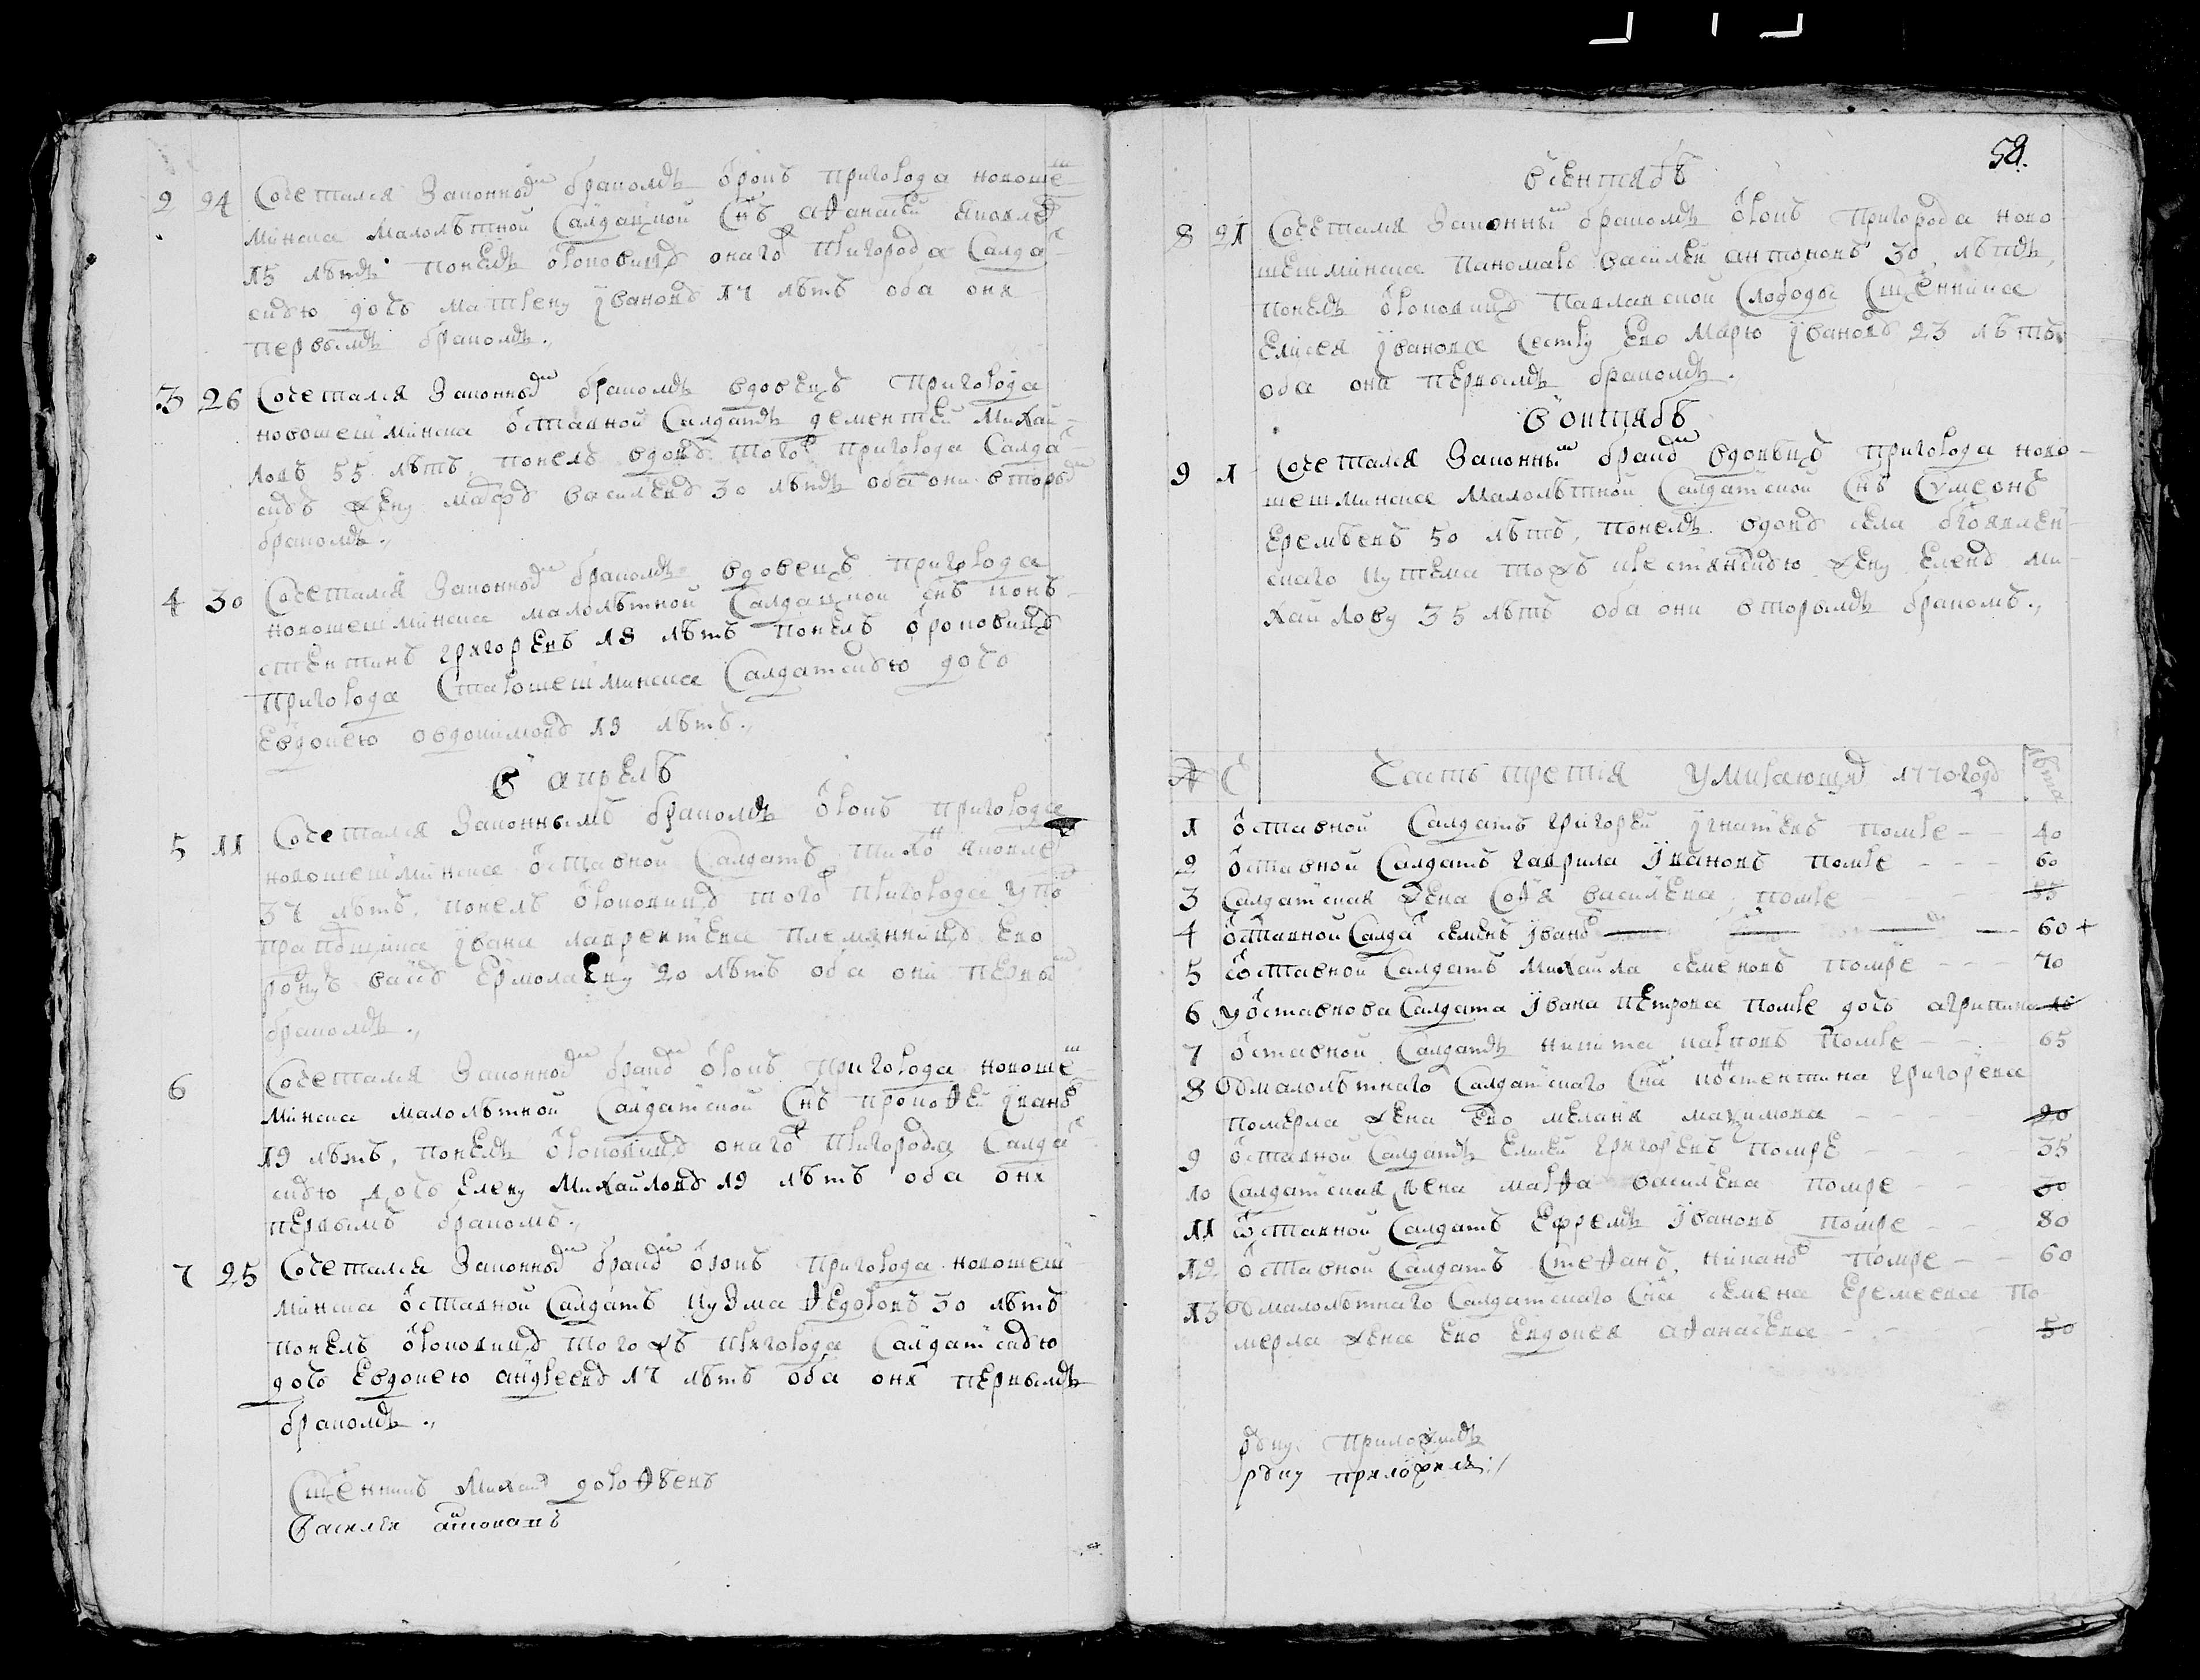 2 24 Сочетался Законно браком отрокъ пригорода новоше
минска малолѣтной Салдацкой Снъ афанасей яковле
15 лѣтъ понелъ отроковицу онаго пригорода Салда
скую дочь матрену ивано‌ву 17 лѣтъ оба они
первымъ бракомъ.
3 26 Сочетался Законны бракомъ вдовецъ Пригорода
новошешминска отставной Салдатъ дементей Михай
ловъ 55 лѣтъ, понелъ вдову того пригорода Салда
скую жену васильеву 30 лѣтъ оба они вторы
бракомъ.
4 30 Сочетался Законно бракомъ вдовецъ пригорода
новошешминска малолѣтной Салдацкой снъ конъ
стентинъ григорьевъ 18 лѣтъ понелъ отроковицу
пригорода Старошешминска Салдатскую дочь
Евдокею овдокимову 19 лѣтъ.
в апрелѣ
5 11 Сочетался Законнымъ бракомъ отрокъ пригорода
новошешминска отставной Салдатъ тихо яковле
37 лѣтъ, понелъ отроковицу того пригорода у по
прапощика ивана лаврентьева племянницу Ево
Ермолаеву 20 лѣтъ оба они первы
бракомъ.
6 Сочетался Законно брако отрокъ пригорода новоше
минска малолѣтной Салдатской Снъ прокофей ивано
19 лѣтъ, понелъ отроковицу онаго пригорода Салда
скую дочь Елену Михайлову 19 лѣтъ оба они
первымъ бракомъ.
7 25 Сочетался Законны брако отрокъ пригорода новошеш
минска отставной Салдатъ Кузма федоровъ 30 лѣтъ
понелъ отроковицу того жъ пригорода Салдатскую
дочь Евдокею андрееву 17 лѣтъ оба они первымъ
бракомъ.
Сщенникъ Михаи дорофѣевъ
58.
в сентябѣ
8 21 Сочетался Законны бракомъ отрокъ Пригорода ново
шешминска панома василей антоновъ 30 лѣтъ,
понелъ отроковицу Павлавской Слободы Сщенника
Елисея иванова Сестру Ево Марю иванову 23 лѣтъ
оба они первымъ бракомъ.
в октябѣ
9 1 Сочетался Законны брако вдовецъ пригорода ново
шешминска малолѣтной Салдатской Снъ Сумеонъ
Еремѣевъ 50 лѣтъ, понелъ вдову села бгоявлен
скаго кутема тожъ крестянскую жену Елену ми
хайлову 35 лѣтъ оба они вторымъ бракомъ.
Часть третія умирающи 1770 году лѣта
1 отставной Салдатъ григорей игнатьевъ помре 40
2 отставной Салдатъ гаврила ивановъ помре 60
3 Салдатская жена Софья васильева помре 85
4 отставной Салда семенъ ивано 60 +
5 отставной Салдатъ михайла семеновъ помре 70
6 у отставнова Салдата ивана петрова помре дочь агрипина 10
7 отставной Салдатъ никита карповъ помре 65
8 у малолѣтнаго Салдатскаго Сна костентина григорьева
померла жена Ево меланя маѯимова 20
9 отставной Салдатъ Елисей григоревъ помре 35
10 Салдатская жена марфа васильева помре
11 отставной Салдатъ Ефремъ ивановъ помре 80
12 отставной Салдатъ Стефанъ никано помре 60
13 у малолѣтнаго Салдатскаго Сна семена Еремеева По
мерла жена Ево Евдокея афанасьева 50
руку приложилъ
руку приложилъ